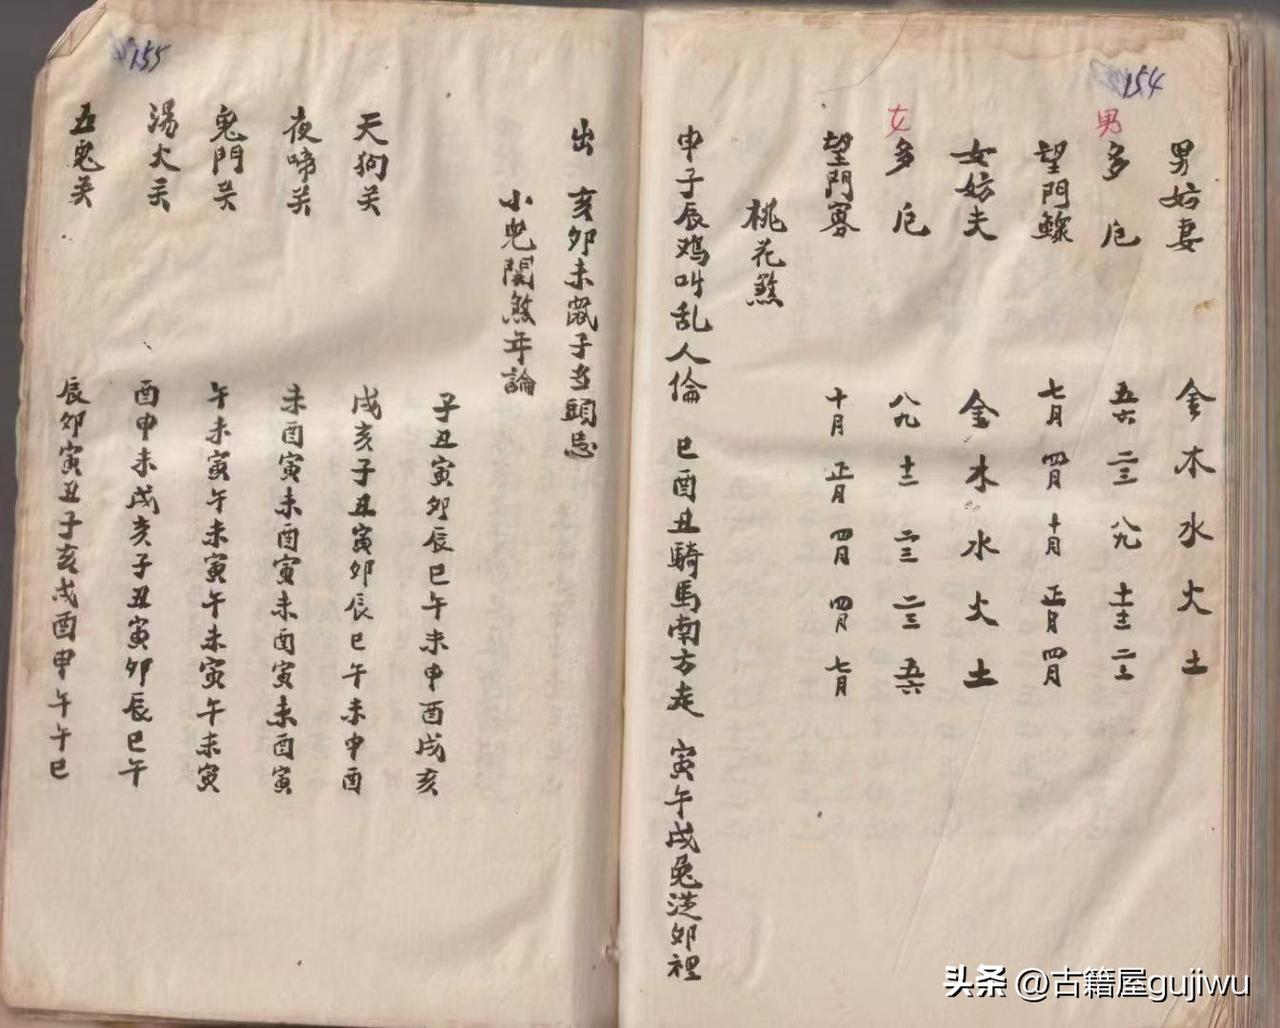 154
男妨妻 金 木 水 火 土
男多厄 五六 二三 八九 十二 二三
望門鰥 七月 四月 十月 正月 四月
女妨夫 金 木 水 火 土
女多厄 八九 十二 二三 二三 五六
望門寡 十月 正月 四月 四月 七月
桃花煞
申子辰鸡叫乱人倫 巳酉丑騎馬南方走 寅午戌兔從卯裡
155
出 亥卯未鼠子当頭忌
小児関煞年論
子丑寅卯辰巳午未申酉戌亥
天狗关 戌亥子丑寅卯辰巳午未申酉
夜啼关 未酉寅未酉寅未酉寅未酉寅
鬼門关 午未寅午未寅午未寅午未寅
湯火关 酉申未戌亥子丑寅卯辰巳午
五鬼关 辰卯寅丑子亥戌酉申午午巳
头条 @古籍屋gujiwu